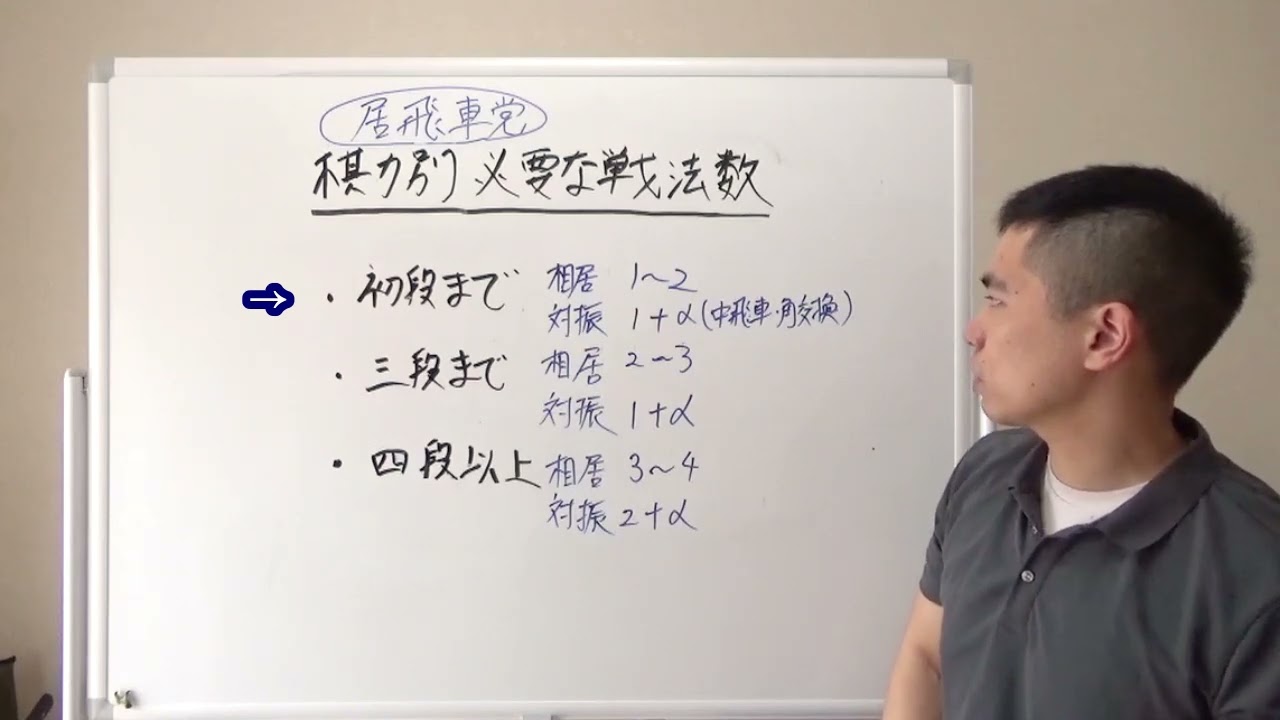 居飛車党
棋力別 必要な戦法数
・初段まで 相居 1~2
対振 1+α(中飛車・角交換)
・三段まで 相居 2~3
対振 1+α
・四段以上 相居 3~4
対振 2+α